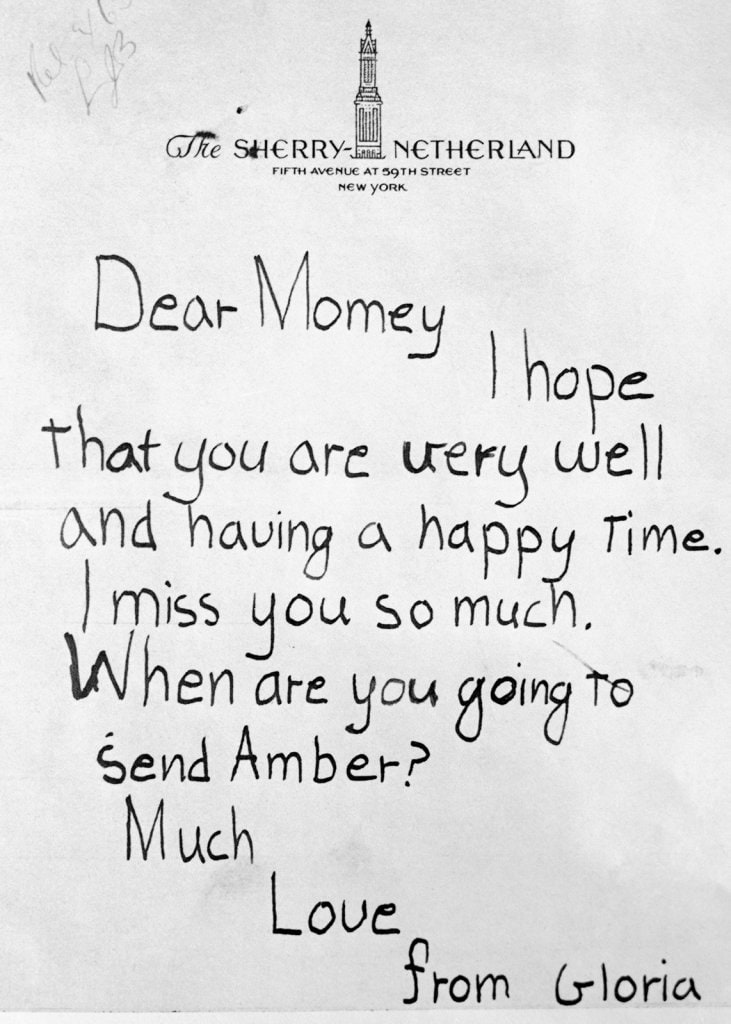 The SHERRY-NETHERLAND
FIFTH AVENUE AT 59TH STREET
NEW YORK
Dear Momey
I hope
that you are very well
and having a happy time.
I miss you so much.
When are you going to
send Amber?
Much
Love
from Gloria